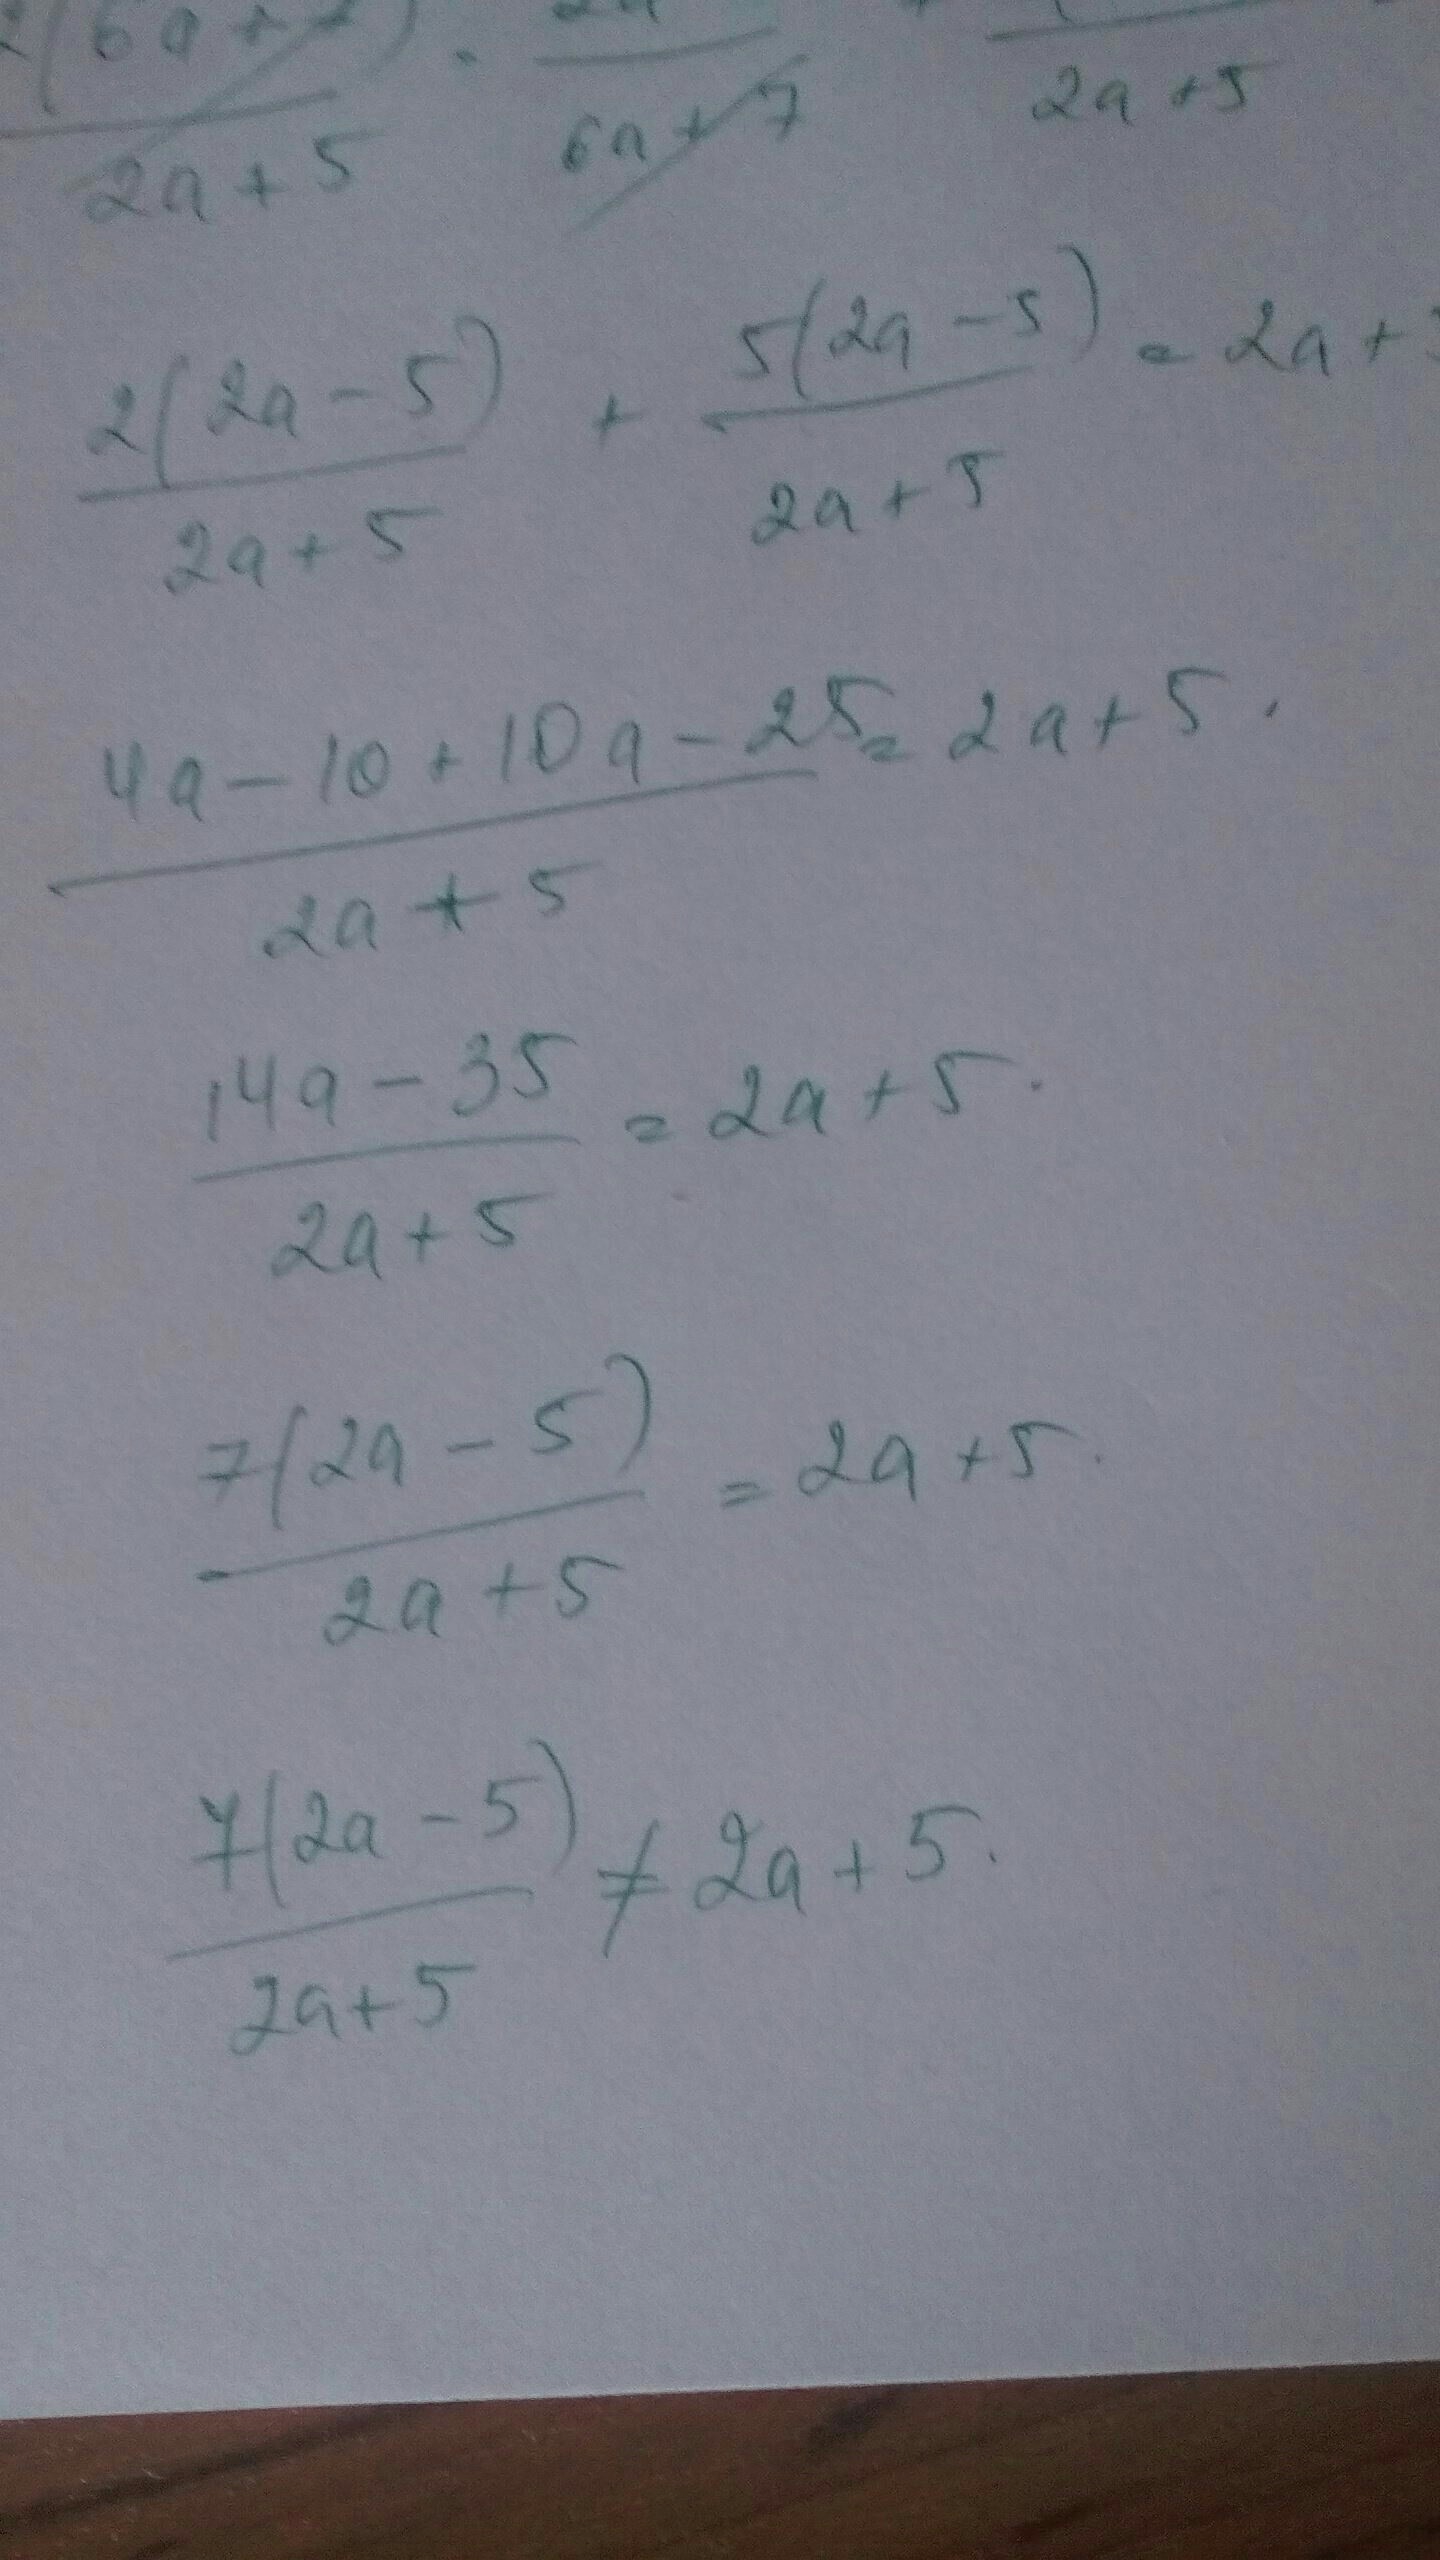 (6a+7) · 2a
2a+5 6a+7 2a+5
2(2a-5)/2a+5 + 5(2a-5)/2a+5 = 2a+
4a-10+10a-25/2a+5 = 2a+5.
14a-35/2a+5 = 2a+5.
7(2a-5)/2a+5 = 2a+5.
7(2a-5)/2a+5 ≠ 2a+5.